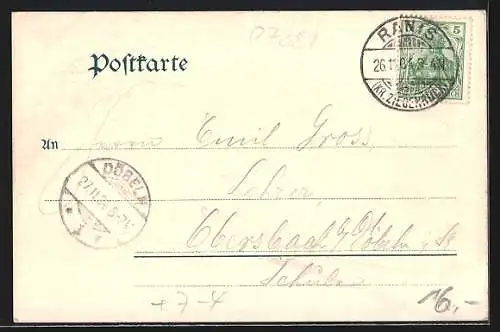 07081
RANIS
26.11.
(KR. ZIEGENRÜCK)
5
Postkarte
An Herrn Emil Gross
Lehrer
DÖBELN
27.11. 8-9V
Ebersbach b/Döbeln i/S
Schule
+7-4
16,-